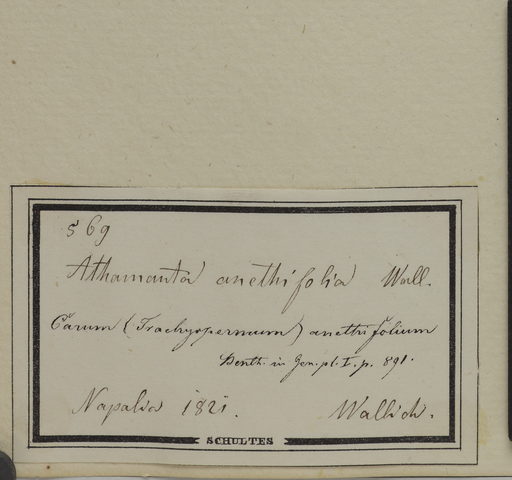 569
Athamanta anethifolia Wall.
Carum (Trachyspermum) anethifolium
Benth. in Gen. pl. I. p. 891.
Napalia 1821.
Wallich.
SCHULTES